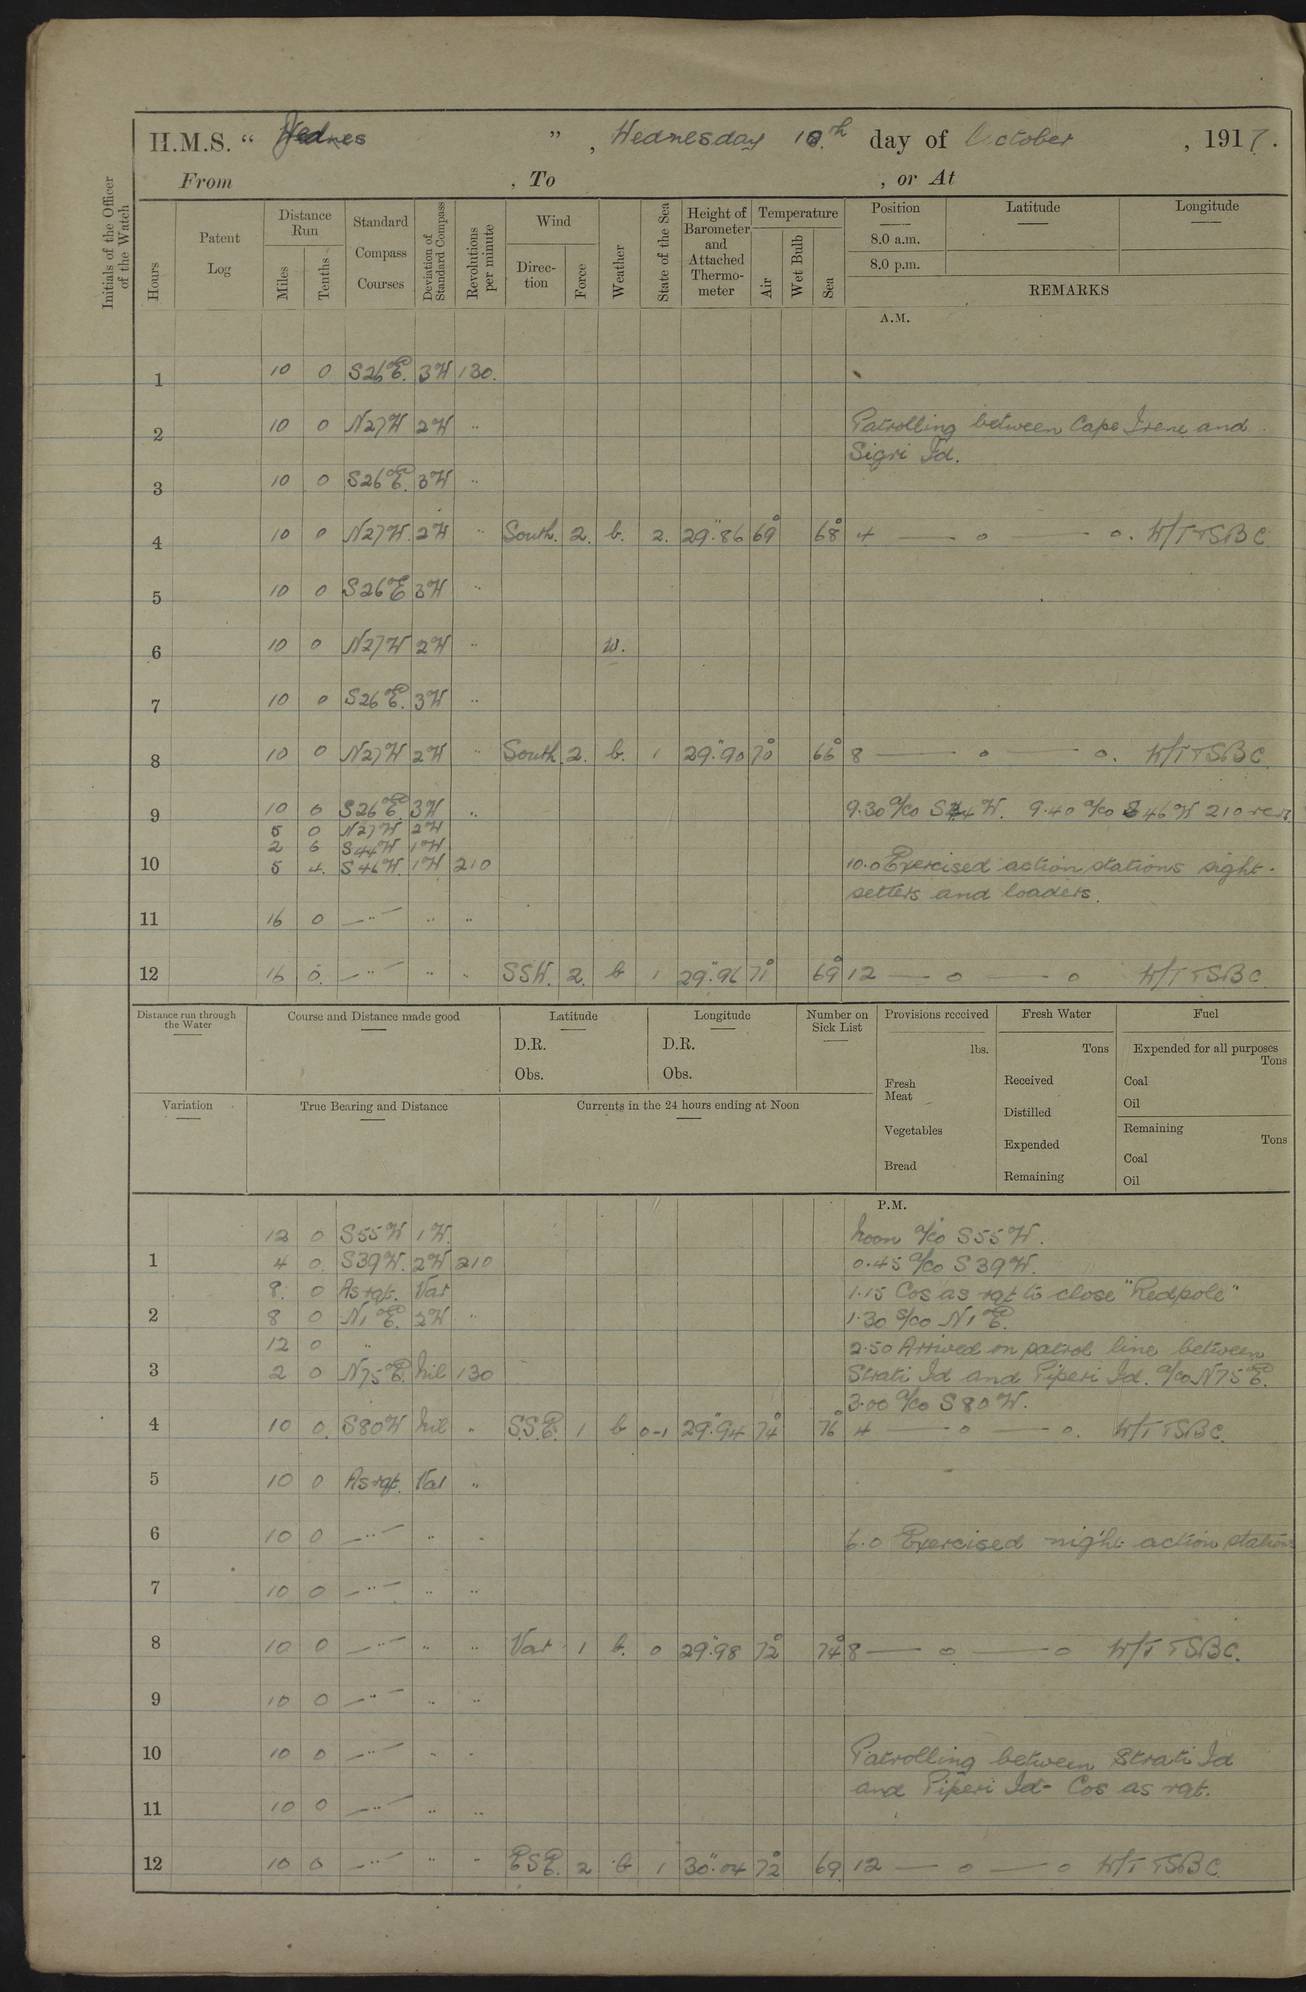 H.M.S. “ Wednes ” , Wednesday 10.th day of October , 1917.
From , To , or At
Initials of the Officer of the Watch
Hours
Patent Log
Distance Run
Miles
Tenths
Standard Compass Courses
Deviation of Standard Compass
Revolutions per minute
Wind
Direction
Force
Weather
State of the Sea
Height of Barometer and Attached Thermometer
Temperature
Air
Wet Bulb
Sea
Position Latitude Longitude
8.0 a.m.
8.0 p.m.
REMARKS
A.M.
1 10 0 S26E. 3W 130.
2 10 0 N27W 2W " Patrolling between Cape Irene and
Sigri Id.
3 10 0 S26E. 3W "
4 10 0 N27W. 2W " South. 2. b. 2. 29".86 69° 68° 4 — o — o. W/T TSBC.
5 10 0 S26E 3W "
6 10 0 N27W 2W " w.
7 10 0 S26E. 3W "
8 10 0 N27W 2W " South 2. b. 1 29".90 70° 66° 8 — o — o. W/T TSBC.
9 10 0 S26E. 3W " 9.30 a/co S44W. 9.40 a/co S46W 210 revs
5 0 N27W 2W
2 6 S44W 1W
10 5 4. S46W. 1W 210 10.0 Exercised action stations sight-
setters and loaders.
11 16 0 — " — " "
12 16 0. — " — " " SSW. 2. b 1 29".96 71° 69° 12 — o — o W/T TSBC.
Distance run through the Water
Course and Distance made good
Latitude
D.R.
Obs.
Longitude
D.R.
Obs.
Number on Sick List
Provisions received
lbs.
Fresh Meat
Vegetables
Bread
Fresh Water
Tons
Received
Distilled
Expended
Remaining
Fuel
Expended for all purposes
Tons
Coal
Oil
Remaining
Tons
Coal
Oil
Variation
True Bearing and Distance
Currents in the 24 hours ending at Noon
P.M.
12 0 S55W 1W. Noon a/co S55W.
1 4 0. S39W. 2W 210 0.45 a/co S39W.
8. 0 As rqt. Var 1.15 Cos as rqt to close "Redpole"
2 8 0 N1E. 2W " 1.30 a/co N1E.
12 0 " 2.50 Arrived on patrol line between
3 2 0 N75E. Nil 130 Strati Id and Piperi Id. a/co N75E.
3.00 a/co S80W.
4 10 0. S80W Nil " S.S.E. 1 b 0-1 29".94 74° 76° 4 — o — o. W/T TSBC.
5 10 0 As rqt. Var "
6 10 0 — " — " " 6.0 Exercised night action stations
7 10 0 — " — " "
8 10 0 — " — " " Var 1 b. 0 29".98 72° 74° 8 — o — o W/T TSBC.
9 10 0 — " — " "
10 10 0 — " — " " Patrolling between Strati Id
and Piperi Id- Cos as rqt.
11 10 0 — " — " "
12 10 0 — " — " " ESE. 2 b 1 30".04 72° 69. 12 — o — o W/T TSBC.